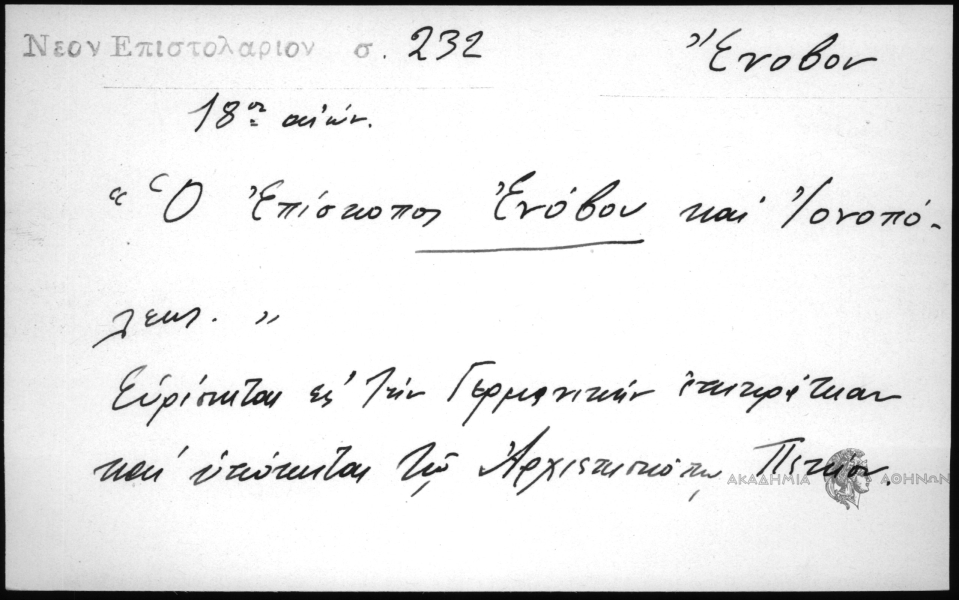 ΝΕΟΝ ΕΠΙΣΤΟΛΑΡΙΟΝ σ. 232
Ἔνοβον
18ος αἰών.
"Ὁ Ἐπίσκοπος Ἐνόβου καὶ Ἰονοπό-
λεως."
Εὑρίσκεται εἰς τὴν Γερμανικὴν ἐπικράτειαν
καὶ ὑπόκειται τῷ Ἀρχιεπισκόπῳ
ΑΚΑΔΗΜΙΑ ΑΘΗΝΩΝ